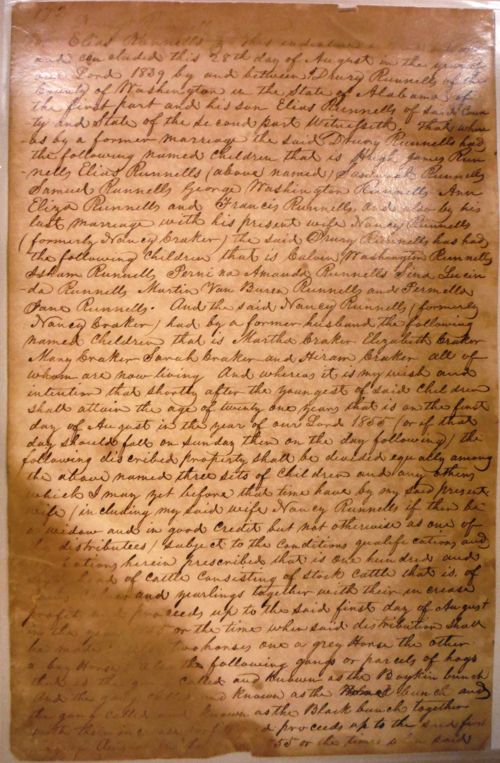 Elias Runnells } This indenture
and concluded this 28th day of August in the year of
our Lord 1839 by and between Drury Runnells of the
County of Washington in the State of Alabama of
the first part and his son Elias Runnells of said Coun
ty and State of the second part Witnesseth. That where
as by a former marriage the said Drury Runnells had
the following named Children that is Hugh James Run
nells Elias Runnells (above named) Runnells
Samuel Runnells George Washington Runnells Ann
Eliza Runnells and Francis Runnells, and also by his
last marriage with his present wife Nancy Runnells
(formerly Nancy Craker) the said Drury Runnells has had
the following Children that is Calvin Washington Runnells
Isham Runnells Amanda Runnells Lucin
da Runnells Martin Van Buren Runnells and Permelia
Jane Runnells. And the said Nancy Runnells (formerly
Nancy Craker) had by a former husband the following
named Children that is Martha Craker Elizabeth Craker
Mary Craker Sarah Craker and Hiram Craker all of
whom are now living And whereas it is my wish and
intention that shortly after the youngest of said Children
shall attain the age of twenty one years that is on the first
day of August in the year of our Lord 1855 (or if that
day should fall on sunday then on the day following) the
following discribed property shall be divided equally among
the above named three sets of Children and any others
which I may yet before that time have by my said present
wife (including my said wife Nancy Runnells if then be
a widow and in good credit but not otherwise as one of
distributees) subject to the conditions qualifications and
herein prescribed that is one hundred and
of cattle consisting of stock cattle that is of
and yearlings together with their increase
up to the said first day of August
or the time when said distribution shall
be made two horses one a grey Horse the other
a bay Horse the following gangs or parcels of hogs
that is the called and known as the Boykin bunch
And the known as the bunch and
the gang called known as the Black bunch together
with their increase proceeds up to the said first
55 or the times when said